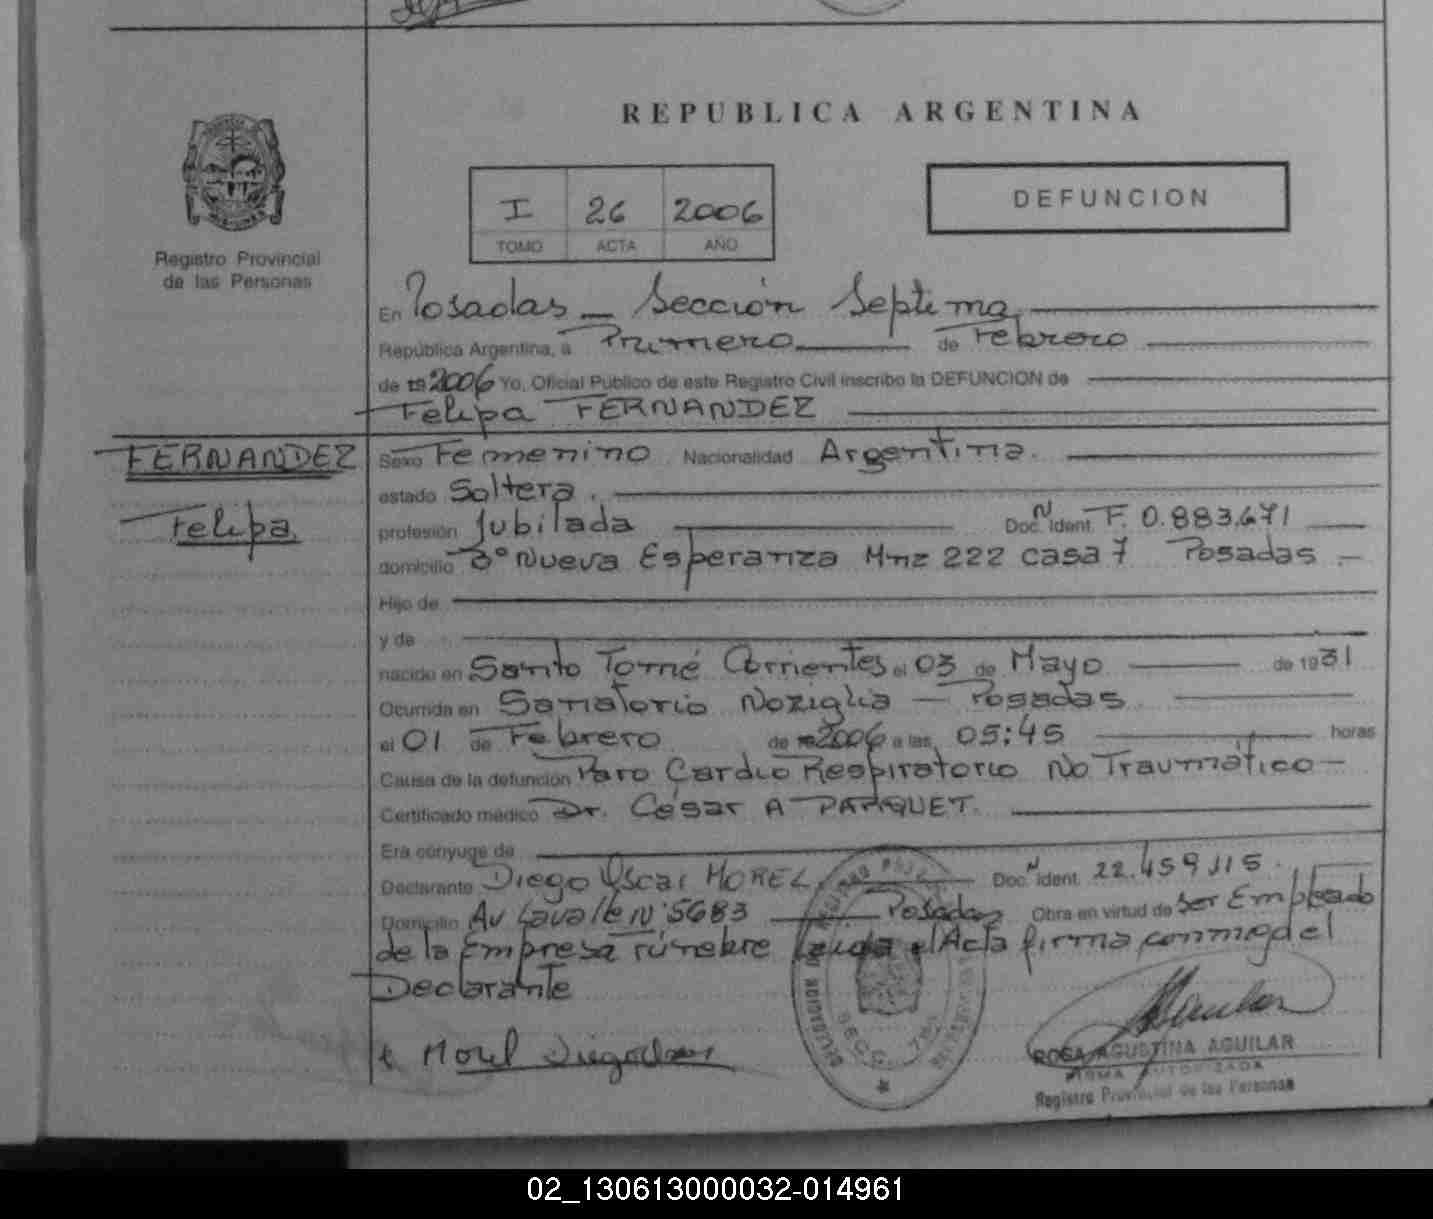 REPUBLICA ARGENTINA
I 26 2006
TOMO ACTA AÑO
DEFUNCION
Registro Provincial
de las Personas
En Posadas - Sección Septima
República Argentina, a Primero de Febrero
de 19 2006 Yo, Oficial Público de este Registro Civil inscribo la DEFUNCION de
Felipa FERNANDEZ
FERNANDEZ
Felipa
Sexo Femenino Nacionalidad Argentina.
estado Soltera.
profesión Jubilada Doc. Nº Ident. F. 0.883.671
domicilio Bº Nueva Esperanza Mnz 222 casa 7 Posadas -
Hijo de
y de
nacido en Santo Tomé Corrientes el 03 de Mayo de 1931
Ocurrida en Sanatorio Noziglia - Posadas
el 01 de Febrero de 19 2006 a las 05:45 horas
Causa de la defunción Paro Cardio Respiratorio No Traumático -
Certificado médico Dr. César A PARQUET.
Era cónyuge de
Declarante Diego Oscar MOREL Doc. Nº Ident. 22.459.115.
Domicilio Av Lavalle Nº 5683 Posadas Obra en virtud de ser Empleado
de la Empresa Fúnebre Leida el Acta firma conmigo el
Declarante
Morel Diego
SECC. 7ma
ROSA AGUSTINA AGUILAR
FIRMA AUTORIZADA
Registro Provincial de las Personas
02_130613000032-014961